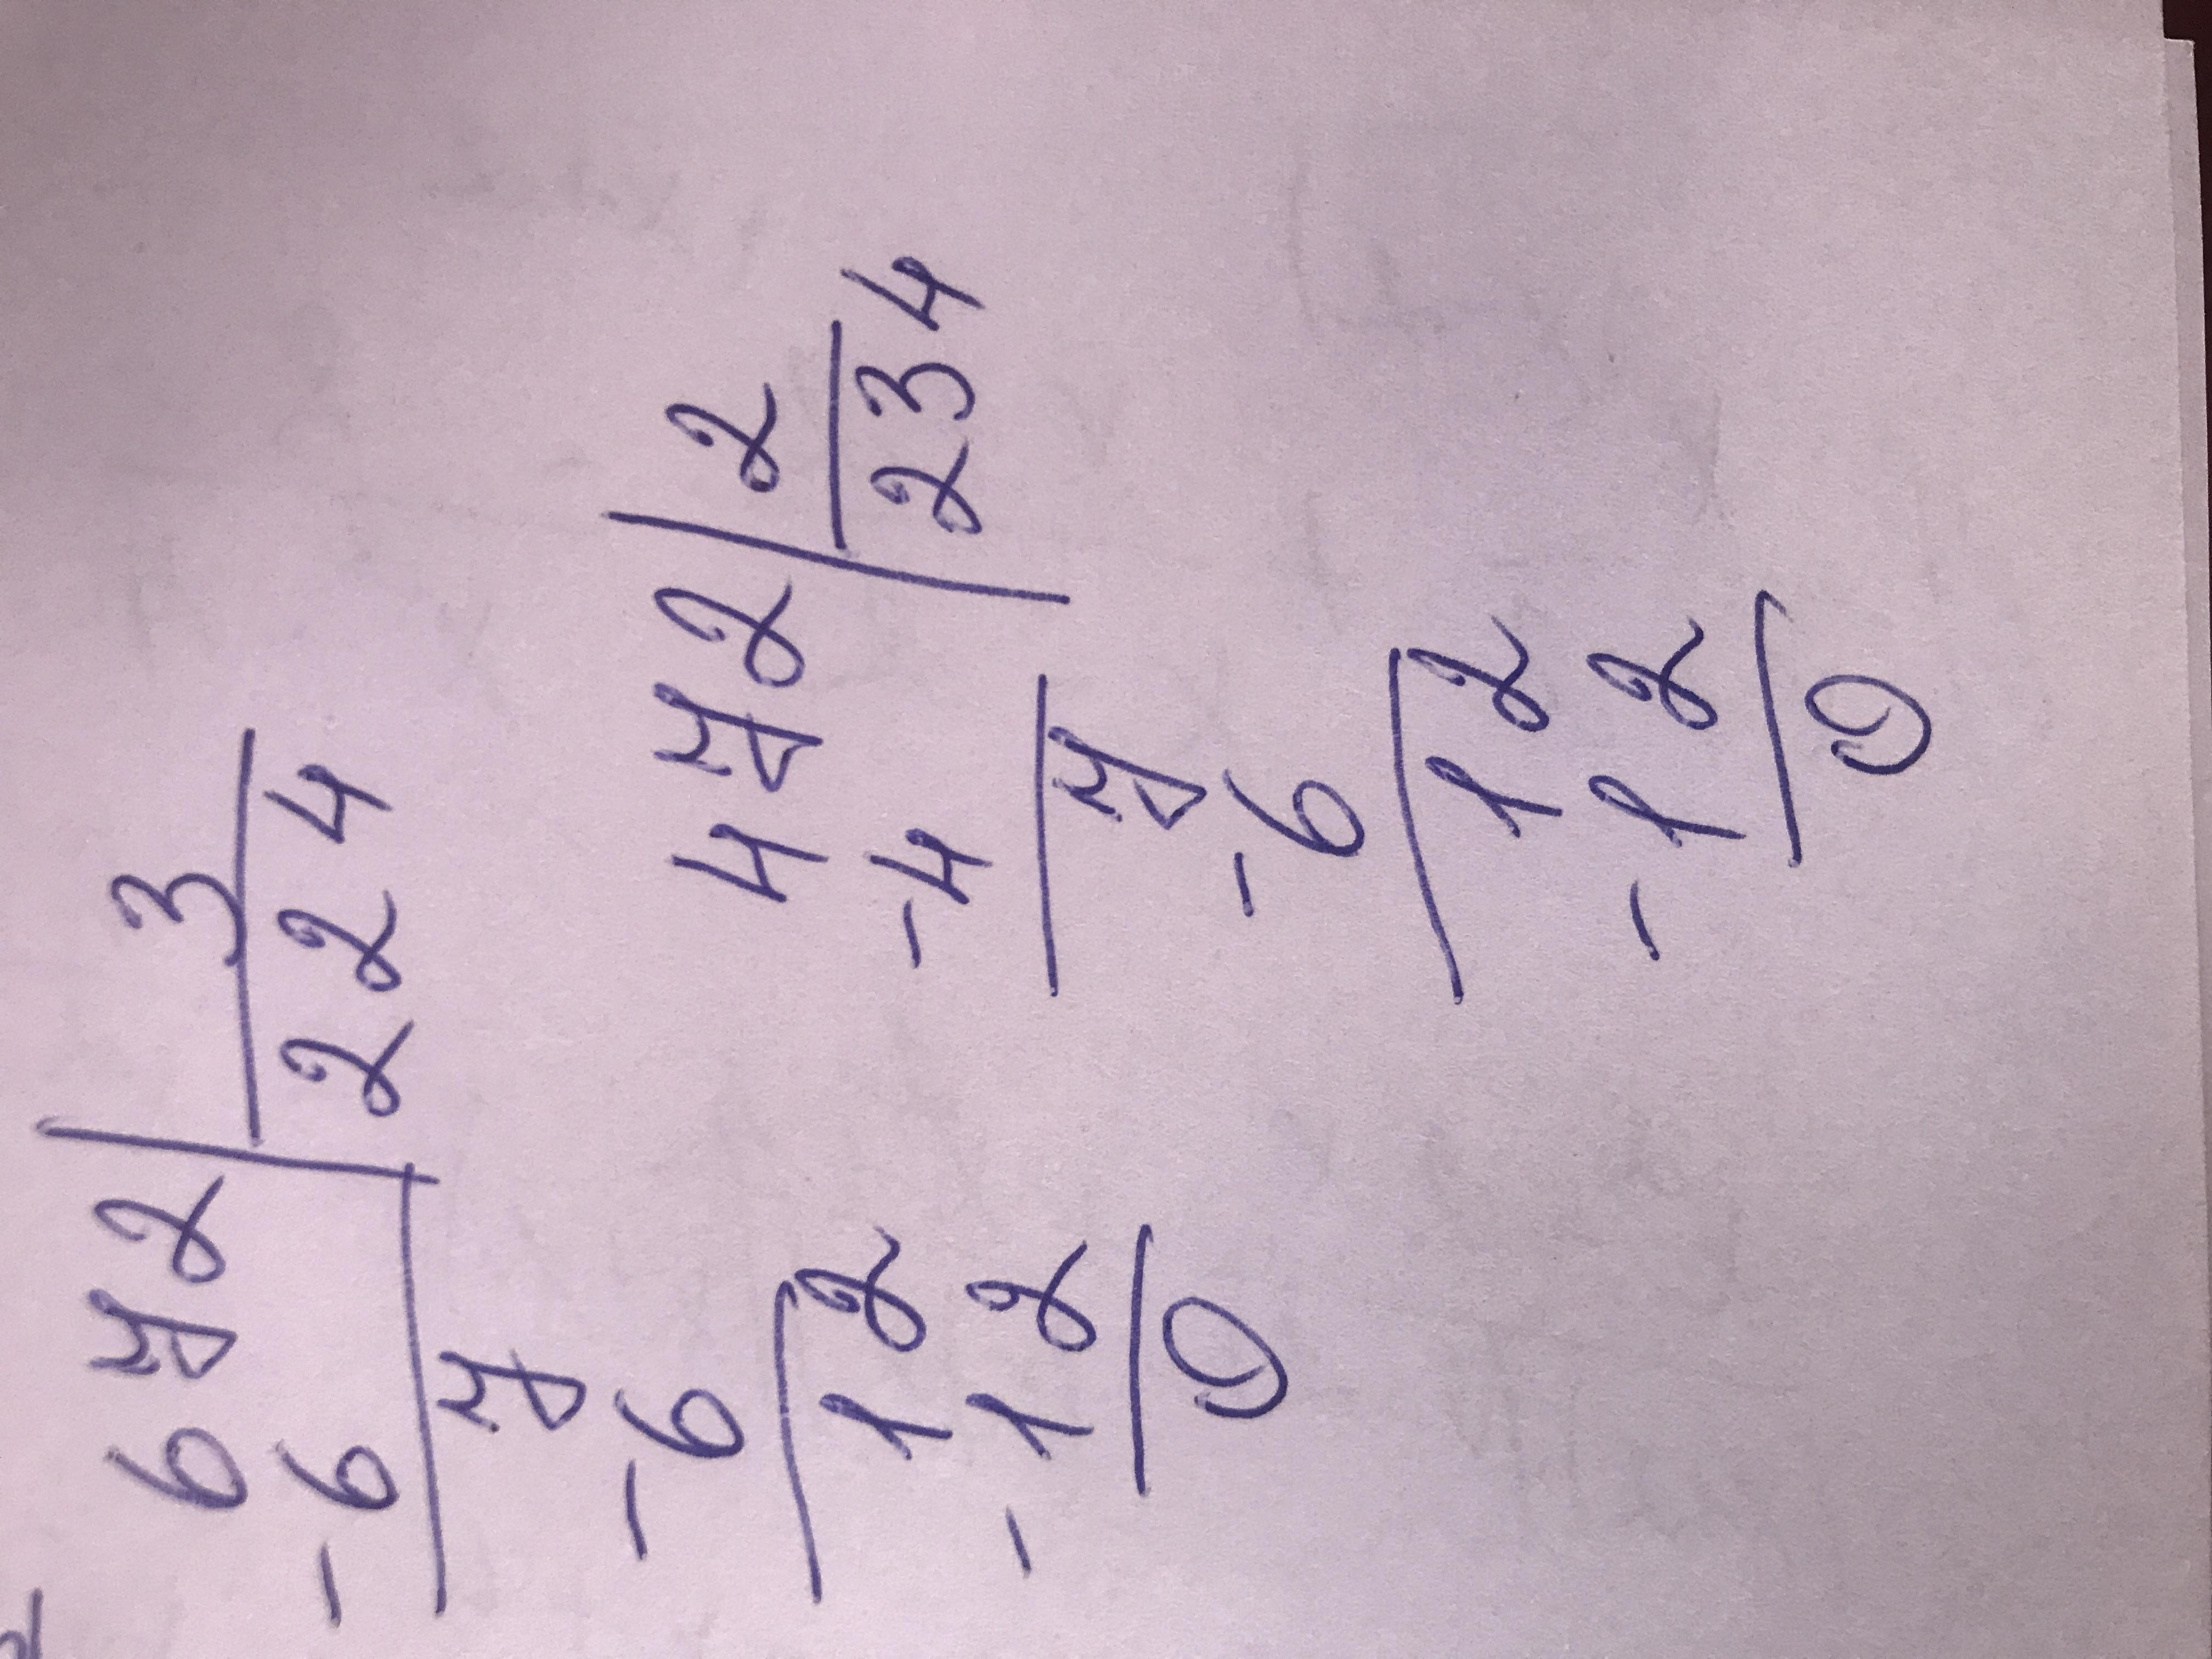 672 3
-6 224
7
-6
12
-12
0
472 2
-4 234
7
-6
12
-12
0